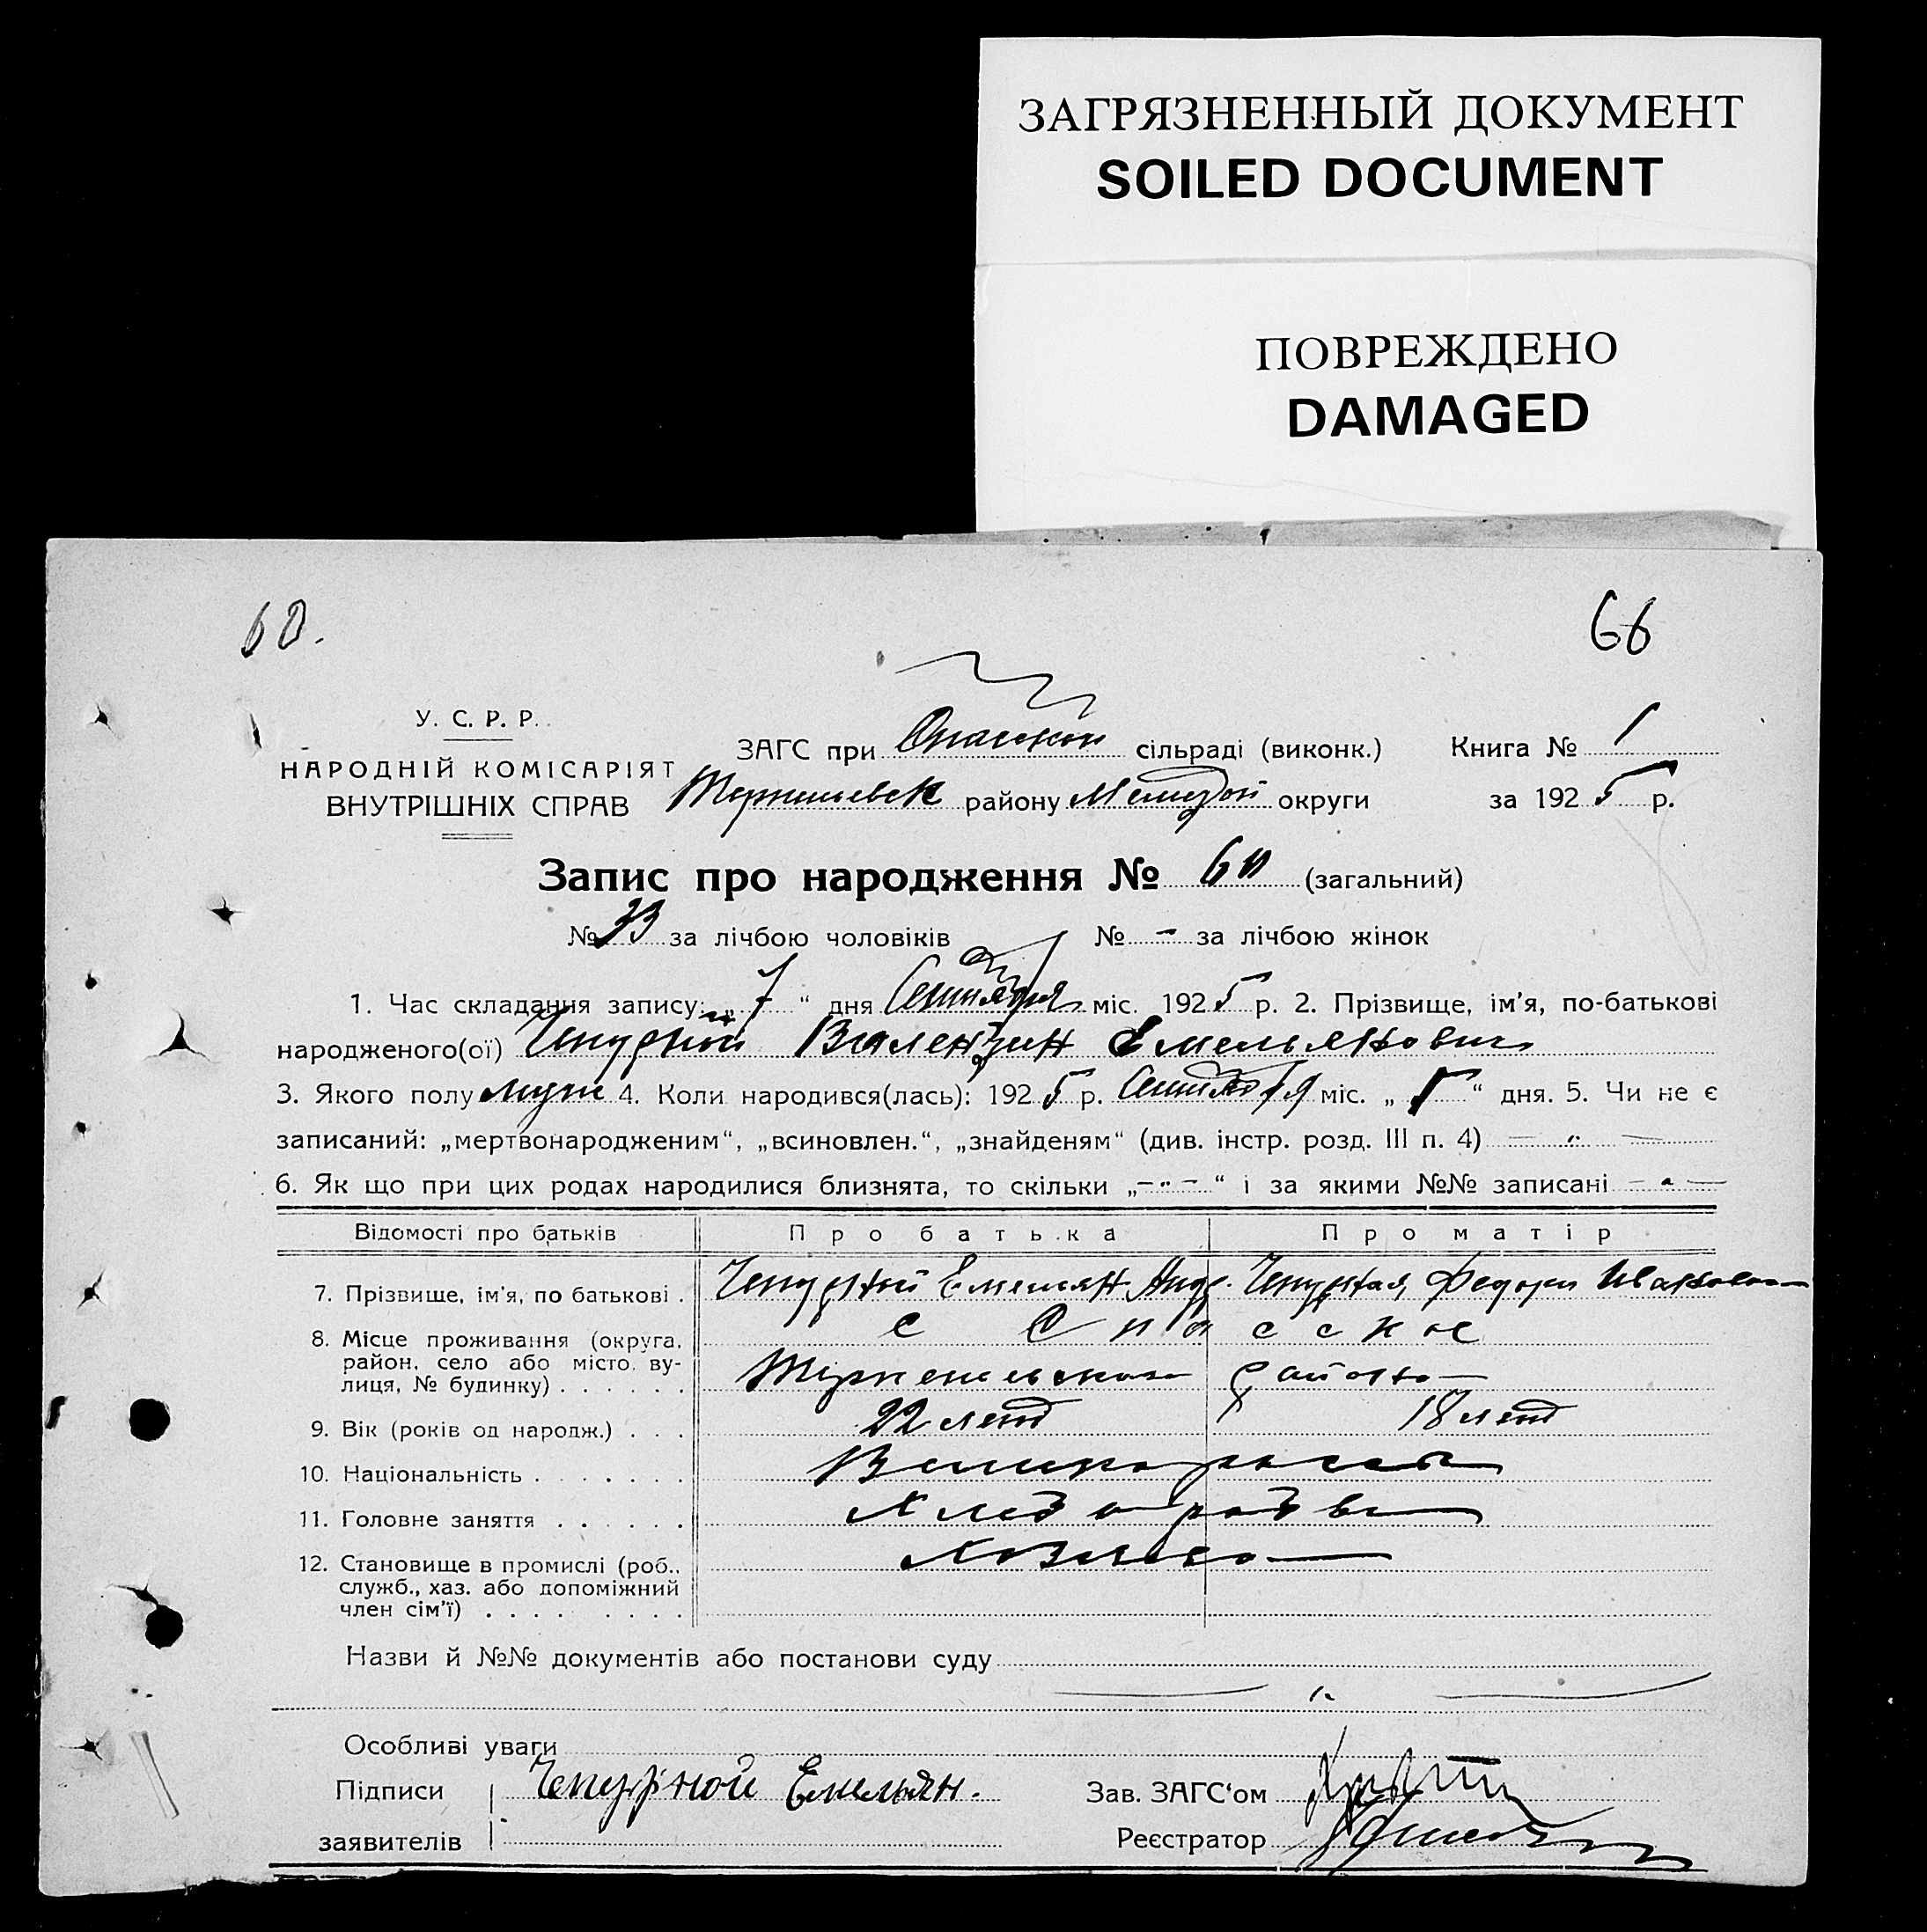 ЗАГРЯЗНЕННЫЙ ДОКУМЕНТ
SOILED DOCUMENT
ПОВРЕЖДЕНО
DAMAGED
60.
66
У. С. Р. Р.
НАРОДНІЙ КОМІСАРІЯТ
ВНУТРІШНІХ СПРАВ
ЗАГС при сільраді (виконк.) Книга № 1
району округи за 1925 р.
Запис про народження № 60 (загальний)
№ 33 за лічбою чоловіків № - за лічбою жінок
1. Час складання запису: „ 7 “ дня Сентября міс. 1925 р. 2. Прізвище, ім’я, по-батькові
народженого(ої) Чепурной Валентин Емельянович
3. Якого полу муж 4. Коли народився(лась): 1925 р. Сентября міс. „ 5 “ дня. 5. Чи не є
записаний: „мертвонародженим“, „всиновлен.“, „знайденям“ (див. інстр. розд. III п. 4) — „ —
6. Як що при цих родах народилися близнята, то скільки „- „ -“ і за якими №№ записані — „ —
Відомості про батьків Про батька Про матір
7. Прізвище, ім’я, по батькові . Чепурной Емельян Андр. Чепурная Федора Ивановна
8. Місце проживання (округа, с Спасское
район, село або місто, ву-
лиця, № будинку) . . . . . . района
9. Вік (років од народж.) . . . 22 лет 18 лет
10. Національність . . . . . . . Великоросс
11. Головне заняття . . . . . . Хлебороб
12. Становище в промислі (роб.,
служб., хаз. або допоміжний
член сім’ї) . . . . . . . . .
Назви й №№ документів або постанови суду
— „ —
Особливі уваги
Підписи Чепурной Емельян. Зав. ЗАГС‘ом
заявителів Реєстратор